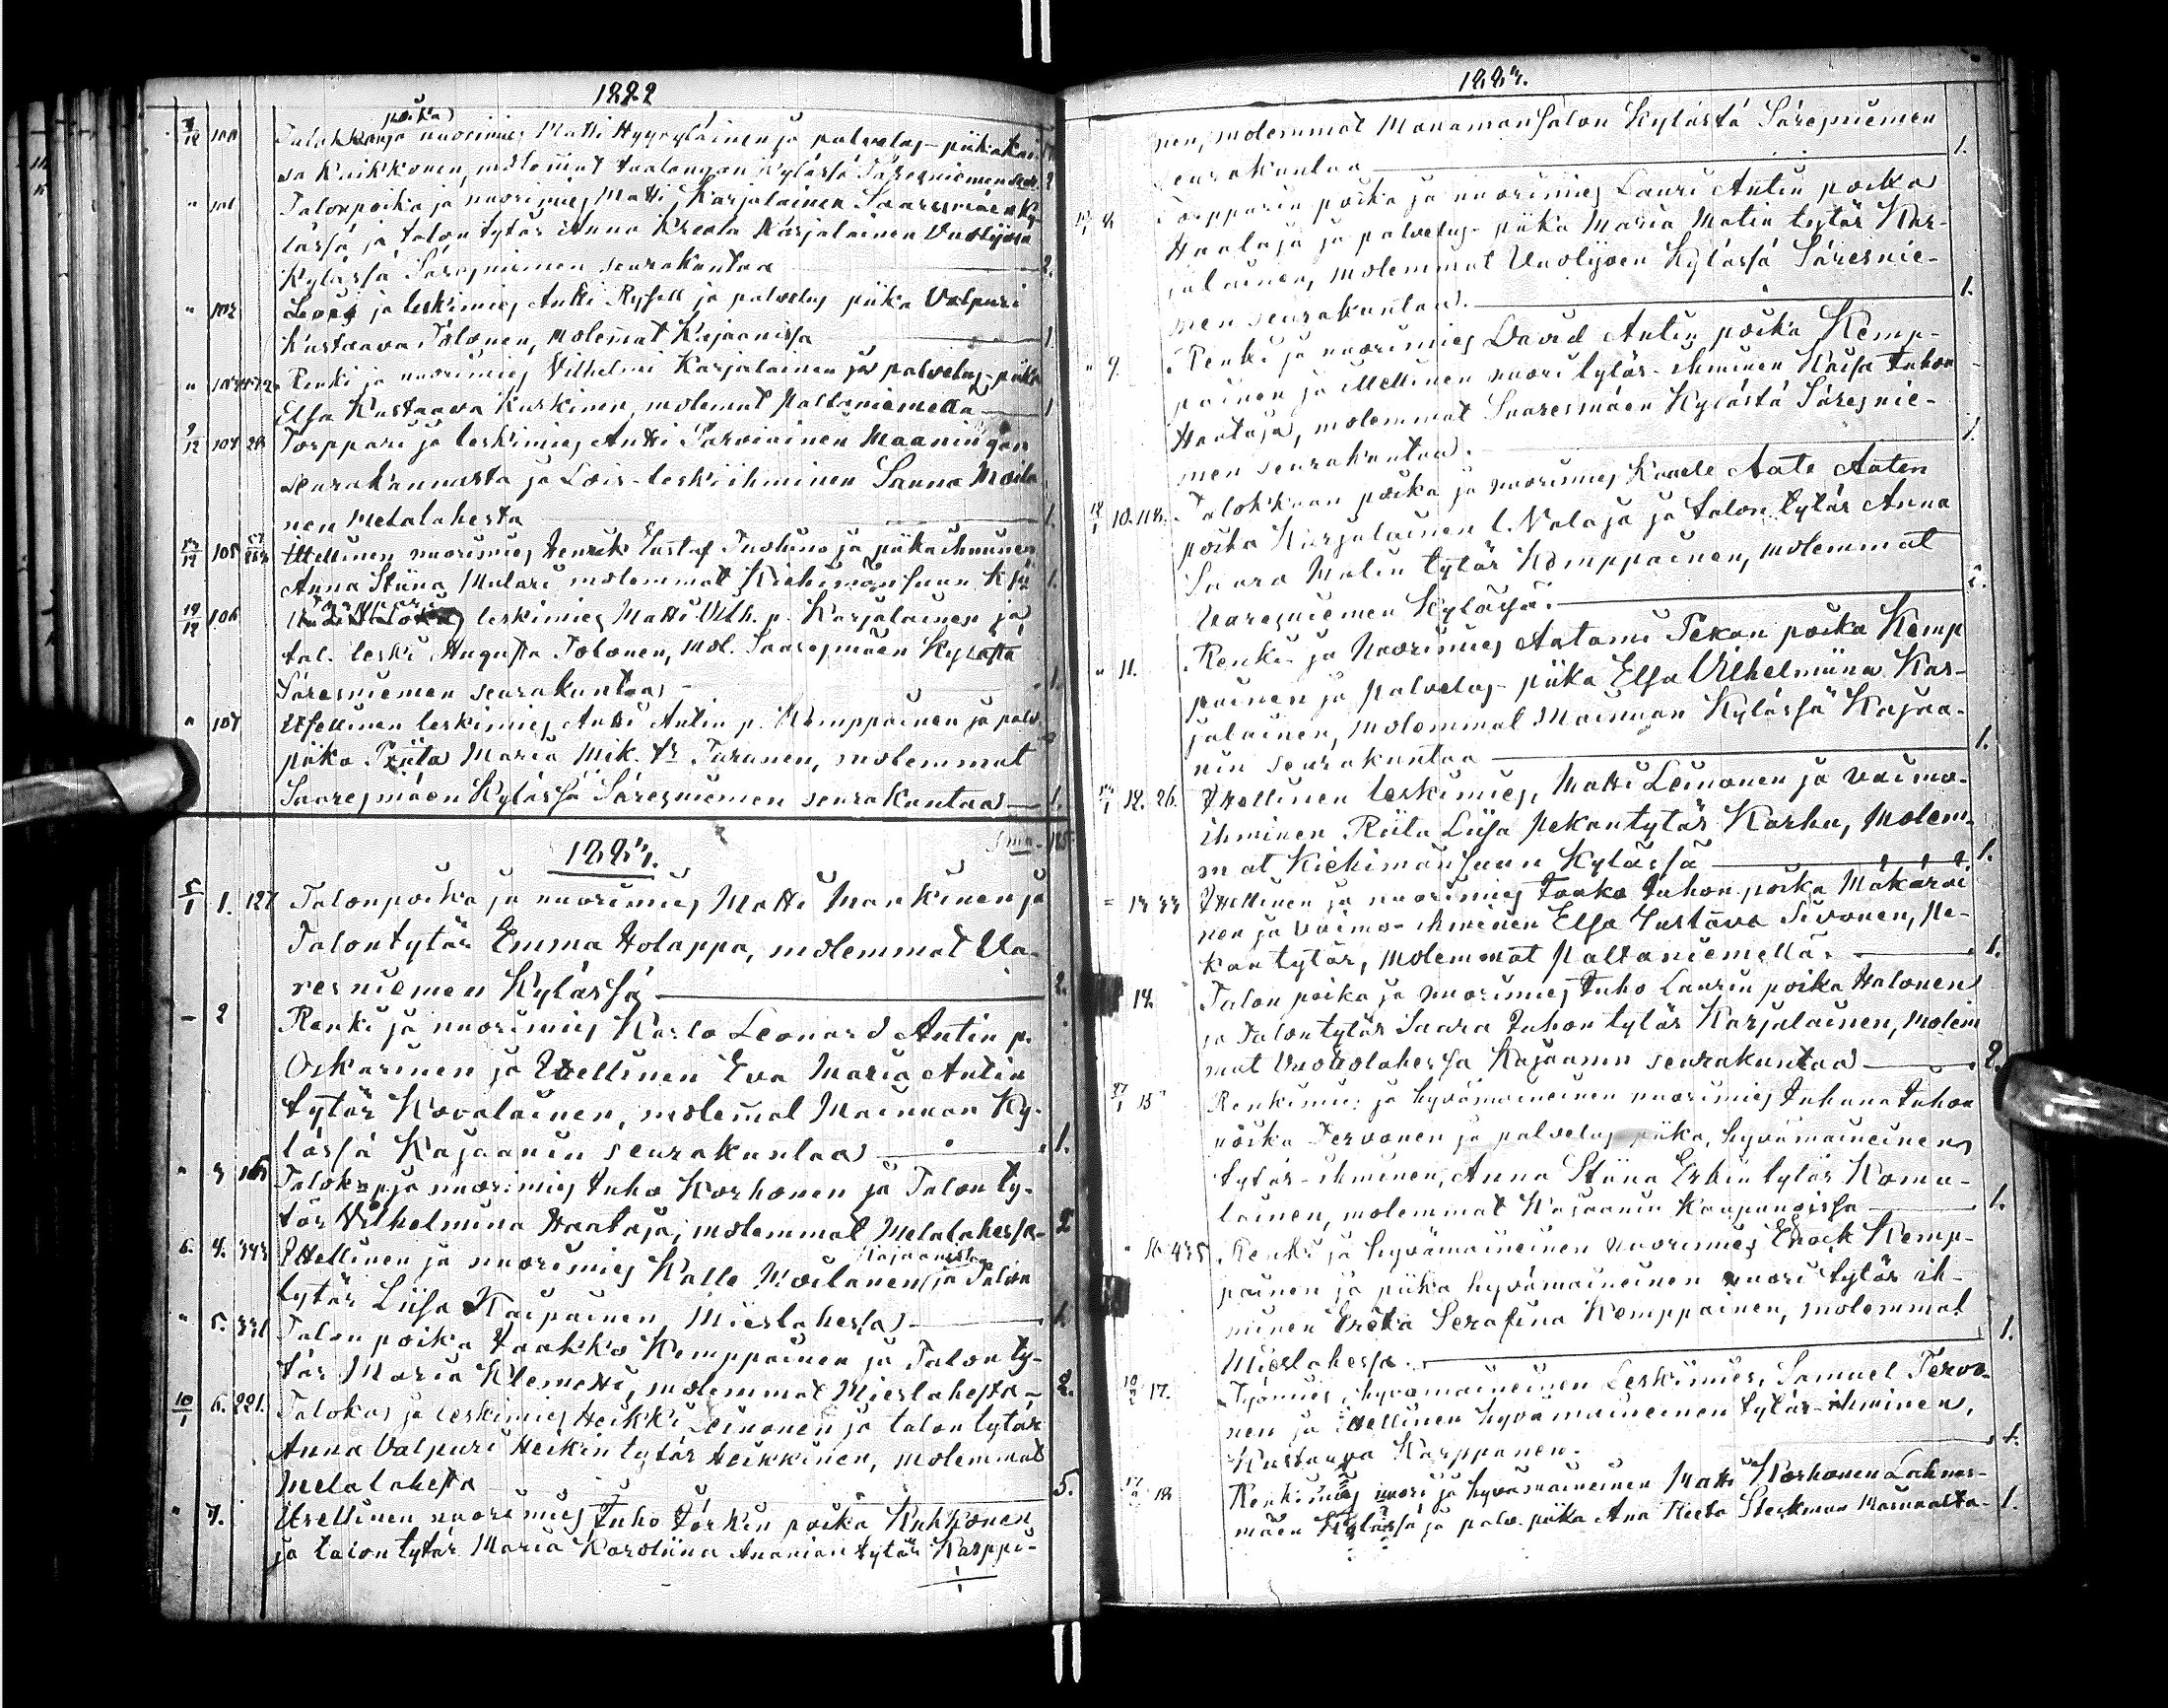 1882
poika
7/12 100 Talokkaan ja nuorimies Matti Hyyryläinen ja palvelus-piika Kai-
sa Keikkonen, molemmat Kylässä Säresniemen seur. 2
" 101 Talonpoika ja nuorimies Matti Karjalainen Saaresmäen Ky-
lässä ja talontytär Anna Kreeta Karjalainen Vuolijoen
Kylässä Säresniemen seurakuntaa 2.
" 102 Lois ja leskimies Antti Ryhell ja palvelus piika Valpuri
Kustaava Tolonen, molemat Kajaanissa 1
" 103 Renki ja nuorimies Vilhelmi Karjalainen ja palvelus-piika
Elsa Kustaava Kurkinen, molemat Paltaniemellä 1
9/12 104 28 Torppari ja leskimies Antti Parviainen Maaningan
seurakunnasta ja Lois-leski ihminen Sanna Moila
nen Melalahesta 1.
13/12 105 Itsellinen nuorimies Henrik Gustaf Tuohino ja piika ihminen
Anna Stiina Mulari molemmat Kiehimänsuun Kylä 1.
19/12 106 leskimies Matti Vilh. p. Karjalainen ja
tal. leski Augusta Tolonen, mol. Saaresmäen Kylästä
Säresniemen seurakuntaa 1.
" 107 Itsellinen leskimies Antti Antin p. Kemppainen ja palv.
piika Priita Maria Mik. tr Turunen, molemmat
Saaresmäen Kylässä Säresniemen seurakuntaa 1.
1883.
5/1 1. 127 Talonpoika ja nuorimies Matti Mankinen ja
Talontytär Emma Holappa, molemmat Va-
resniemen Kylässä 2.
— 2 Renki ja nuorimies Karlo Leonard Antin p.
Oskarinen ja Itsellinen Eva Maria Antin
tytär Kovalainen, molemat Mainuan Ky-
lässä Kajaanin seurakuntaa 1.
" 3 Talok. p. ja nuorimies Juho Korhonen ja Talon ty-
tär Vilhelmina Haataja, molemmat Melalahessa 2
Kajaanista
6. 4. 343 Itsellinen ja nuorimies Kalle Moilanen ja Talon
tytär Liisa Kaipainen, Mieslahessa 1.
" 5. 331 Talon poika Jaakko Kemppainen ja Talon ty-
tär Maria Klemetti, molemmat Mieslahesta 2.
10/1 6. 221. Talokas ja leskimies Heikki Leinonen ja talon tytär
Anna Valpuri Heikin tytär Heikkinen, molemmat
Melalahesta 5.
" 7. Itsellinen nuorimies Juho Yörkin poika Kuhkonen
ja talontytär Maria Karoliina Ananian tytär Karppi-
1883.
nen, molemmat Manamansalon Kylästä Säresniemen
seurakuntaa 1.
8. Torpparin poika ja nuorimies Lauri Antin poika
Haataja ja palvelus-piika Maria Matin tytär Kar-
jalainen, molemmat Vuolijoen Kylässä Säresnie-
men seurakuntaa. 1.
" 9. Renki ja nuorimies David Antin poika Kemp-
painen ja itsellinen nuori tytär-ihminen Kaisa Juhon
Haataja, molemmat Saaresmäen Kylästä Säresnie-
men seurakuntaa. 1.
10. 118. Talokkaan poika ja nuorimies Kaarle Aate Aaten
poika Karjalainen l. Valaja ja talon tytär Anna
Saara Matin tytär Kemppainen, molemmat
Varesniemen Kylässä. 2.
" 11. Renki ja Nuorimies Aatami Pekan poika Kemp
painen ja palvelus-piika Elsa Vilhelmiina Kar-
jalainen, molemmat Mainuan Kylässä Kajaa-
nin seurakuntaa 1.
12. 26. Itsellinen leskimies, Matti Leinonen ja vaimo-
ihminen Riita Liisa Pekantytär Karhu, Molem-
mat Kiehimänsuun Kylässä 1.
13 33 Itsellinen ja nuorimies Jaako Juhon poika Mäkäräi
nen ja vaimo-ihminen Elsa Justava Sivonen, Pe-
kan tytär, Molemmat Paltaniemellä. 1.
14. Talon poika ja nuorimies Juho Laurin poika Halonen
ja Talontytär Saara Juhon tytär Karjalainen, molem
mat Vuottolahessa Kajaanin seurakuntaa 2.
15 Renkimies ja hyvämaineinen nuorimies Juhana Juhon
poika Tervonen ja palvelus piika, hyvämaineinen
tytär-ihminen, Anna Stiina Erkin tytär Komu-
lainen, molemmat Kajaanin Kaupungissa 1.
" 16 435 Renki ja hyvämaineinen nuorimies Enock Kemp-
painen ja piika hyvämaineinen nuori tytär ih-
minen Greta Serafina Kemppainen, molemmat
Mieslahessa. 1.
10/2 17. Työmies, hyvämaineinen Leskimies, Samuel Tervo-
nen ja itsellinen hyvämaineinen tytär-ihminen,
Kustaava Karppanen. 1.
18 Renkimies nuori ja hyvämaineinen Matti Korhonen Lahnas-
mäen Kylässä ja palv. piika Ana Reeta Steckman Mainualta 1.